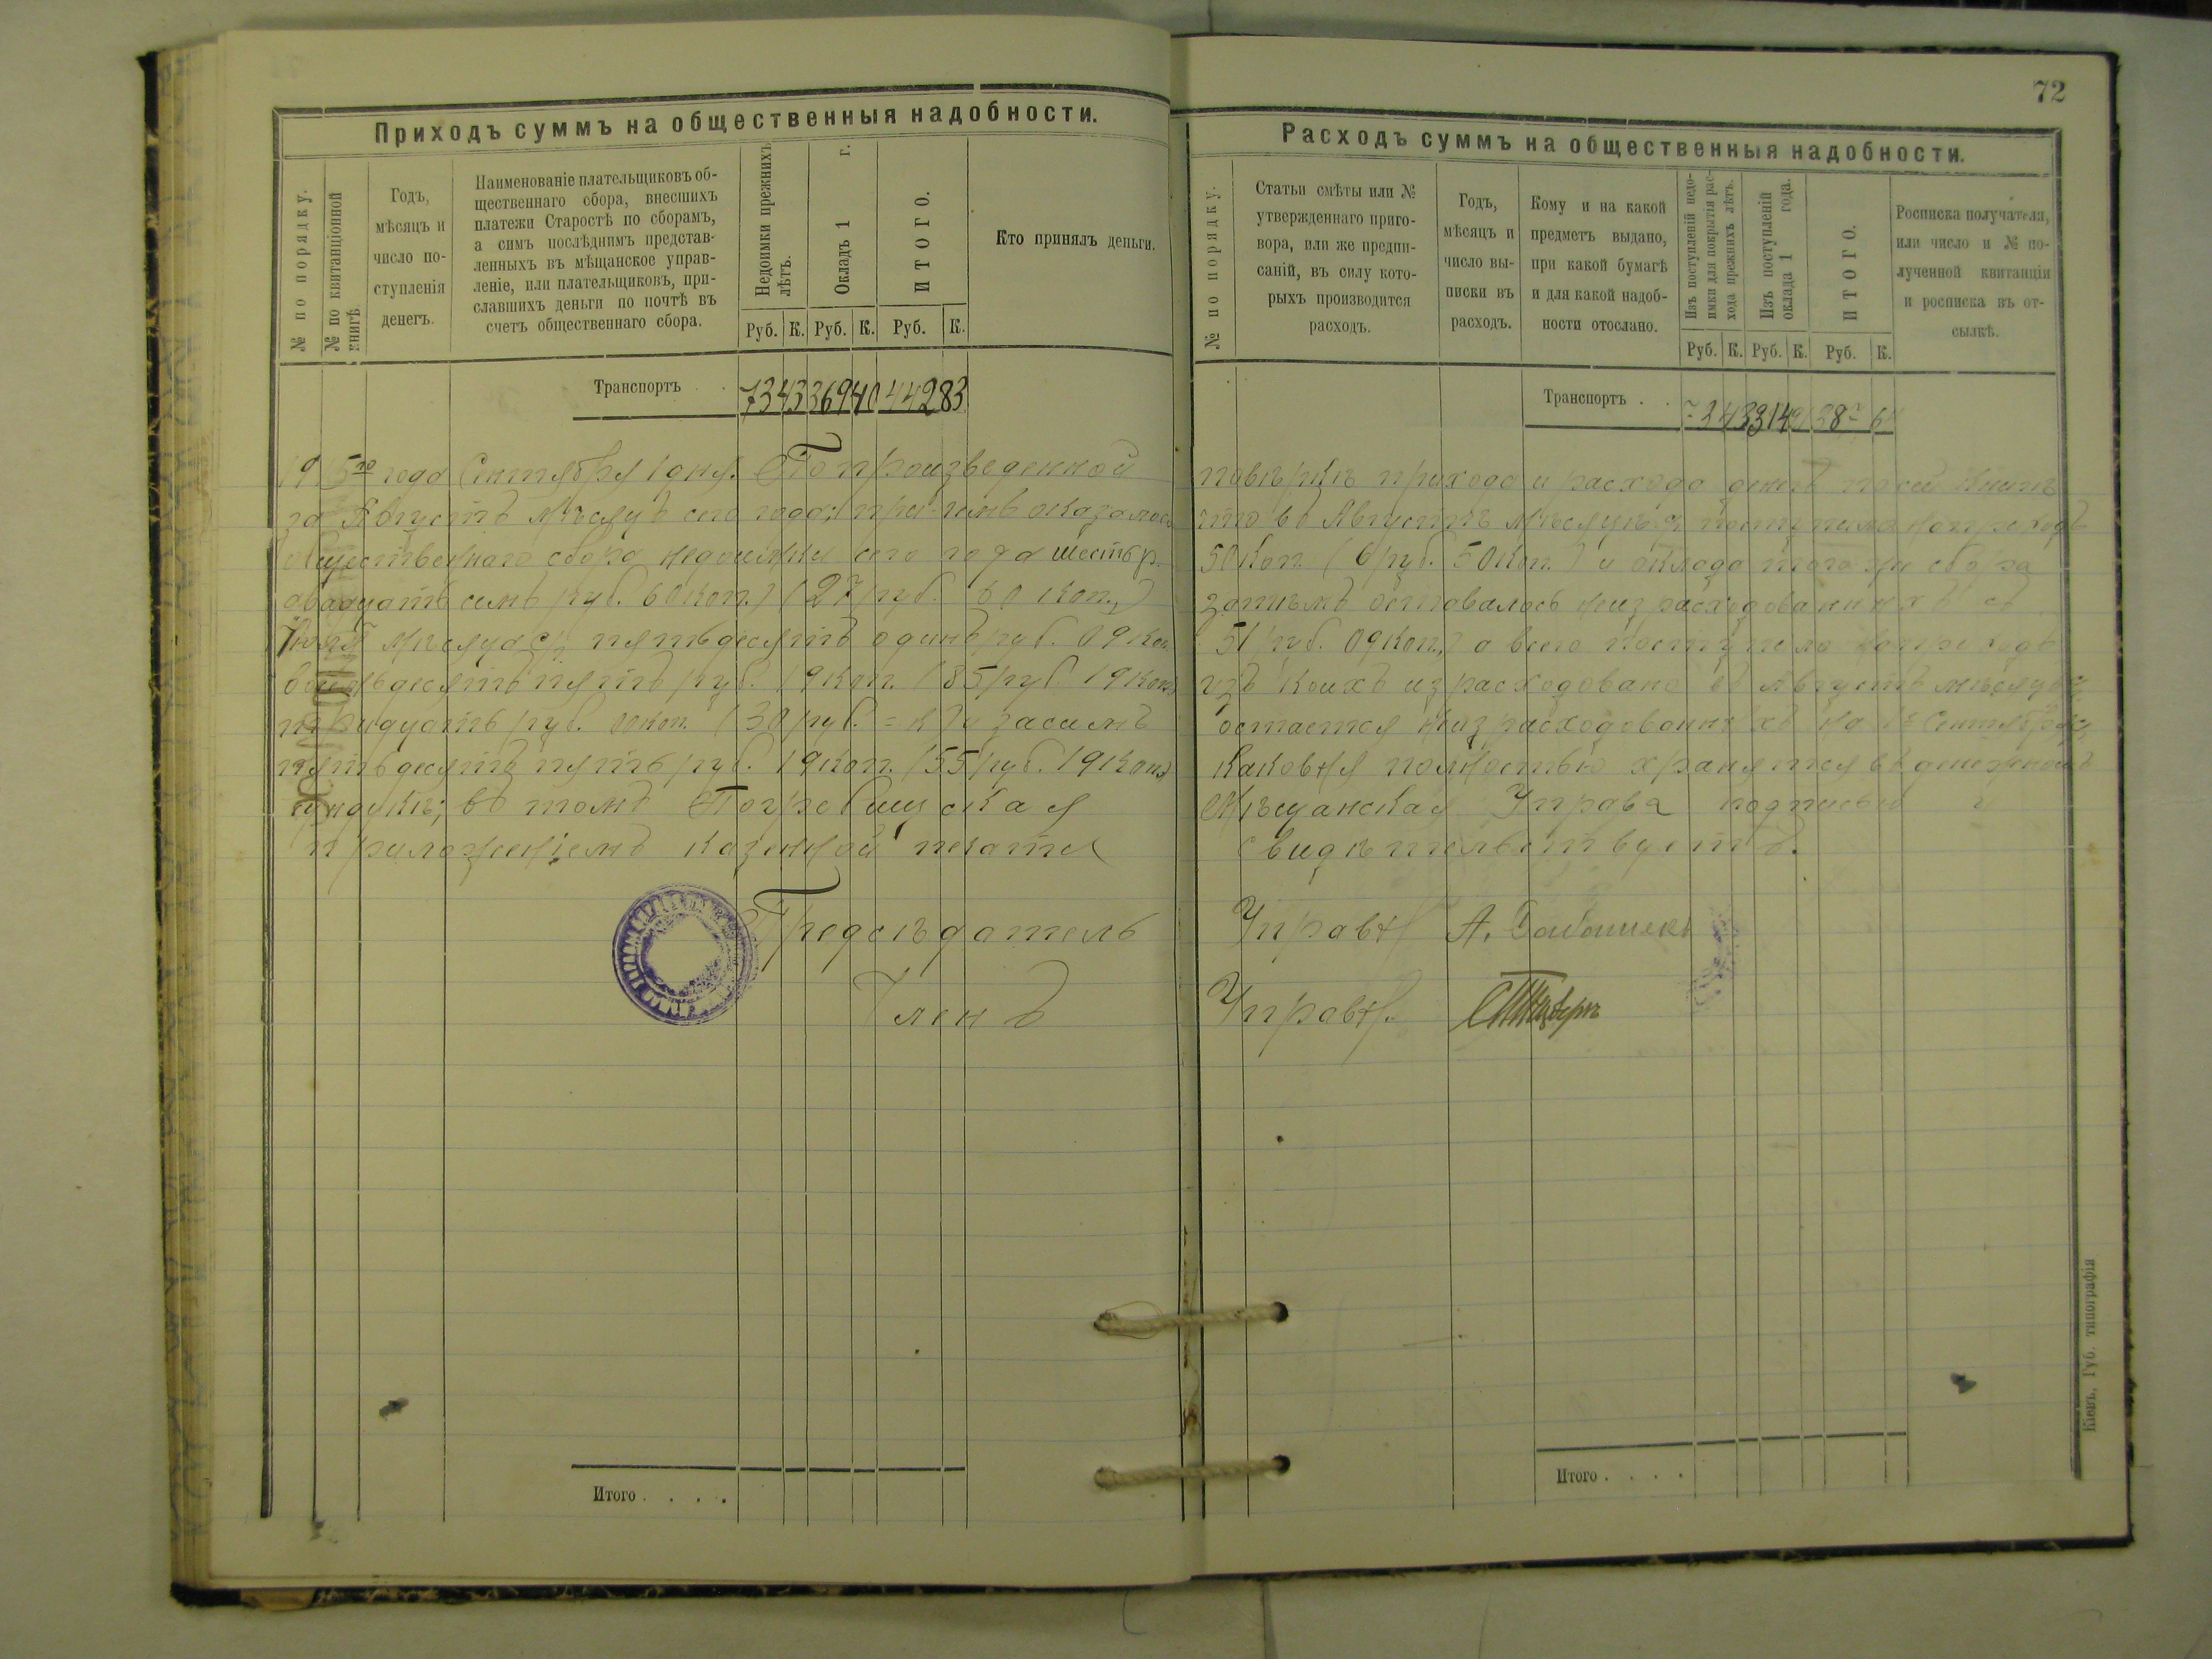 72
Приходъ суммъ на общественныя надобности.
№ по порядку.
№ по квитанціонной
книгѣ.
Годъ,
мѣсяцъ и
число по-
ступленія
денегъ.
Наименованіе плательщиковъ об-
щественнаго сбора, внесшихъ
платежи Старостѣ по сборамъ,
а симъ послѣднимъ представ-
ленныхъ въ мѣщанское управ-
леніе, или плательщиковъ, при-
славшихъ деньги по почтѣ въ
счетъ общественнаго сбора.
Недоимки прежнихъ
лѣтъ.
Окладъ 1 г.
ИТОГО.
Кто принялъ деньги.
Руб. К. Руб. К. Руб. К.
Транспортъ . . 73 43 369 40 442 83
1915го года Сентября 1 дня. По произведенной
за Августъ мѣсяцъ сего года, при чемъ оказалось
общественнаго сбора недоимки сего года шесть р.
двадцать семь руб. 60 коп. (27 руб. 60 коп.)
Іюля мѣсяца с/г пятьдесятъ одинъ руб. 09 коп.
восемьдесятъ пять руб. 19 коп. (85 руб 19 коп.)
тридцать руб. 00 коп. (30 руб. = к) и засимъ
пятьдесятъ пять руб. 19 коп. (55 руб. 19 коп.)
сундукѣ; въ томъ Погребищская
приложеніемъ казенной печати
Предсѣдатель
Членъ
Итого . . . .
Расходъ суммъ на общественныя надобности.
№ по порядку.
Статьи смѣты или №
утвержденнаго приго-
вора, или же предпи-
саній, въ силу кото-
рыхъ производится
расходъ.
Годъ,
мѣсяцъ и
число вы-
писки въ
расходъ.
Кому и на какой
предметъ выдано,
при какой бумагѣ
и для какой надоб-
ности отослано.
Изъ поступленій недо-
имки для покрытія рас-
хода прежнихъ лѣтъ.
Изъ поступленій
оклада 1 года.
ИТОГО.
Росписка получателя,
или число и № по-
лученной квитанціи
и росписка въ от-
сылкѣ.
Руб. К. Руб. К. Руб. К.
Транспортъ . .
повѣркѣ прихода и расхода денегъ по сей книгѣ
что въ Августѣ мѣсяцѣ с/г поступило на приходъ
50 коп. (6 руб. 50 коп.) и оклада того же сбора
затѣмъ оставалось неизрасходованныхъ съ
51 руб. 09 коп., а всего поступило на приходъ
изъ коихъ израсходовано въ Августѣ мѣсяцѣ
остается неизрасходованныхъ на 1е Сентября
каковыя полностью хранятся въ денежномъ
Мѣщанская Управа подписью и
свидѣтельствуетъ.
Управы А.
Управы
Итого . . . .
Кіевъ, Губ. типографія